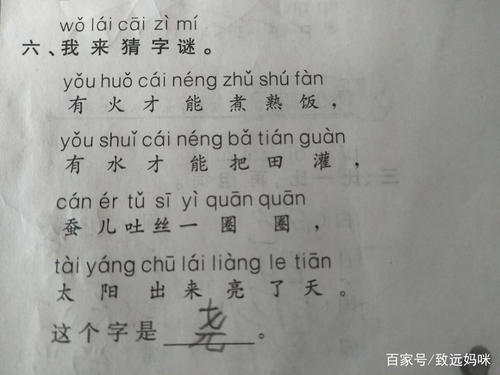 wǒ lái cāi zì mí
六、我来猜字谜。
yǒu huǒ cái néng zhǔ shú fàn
有火才能煮熟饭，
yǒu shuǐ cái néng bǎ tián guàn
有水才能把田灌，
cán ér tǔ sī yì quān quān
蚕儿吐丝一圈圈，
tài yáng chū lái liàng le tiān
太阳出来亮了天。
这个字是 尧 。
百家号/致远妈咪